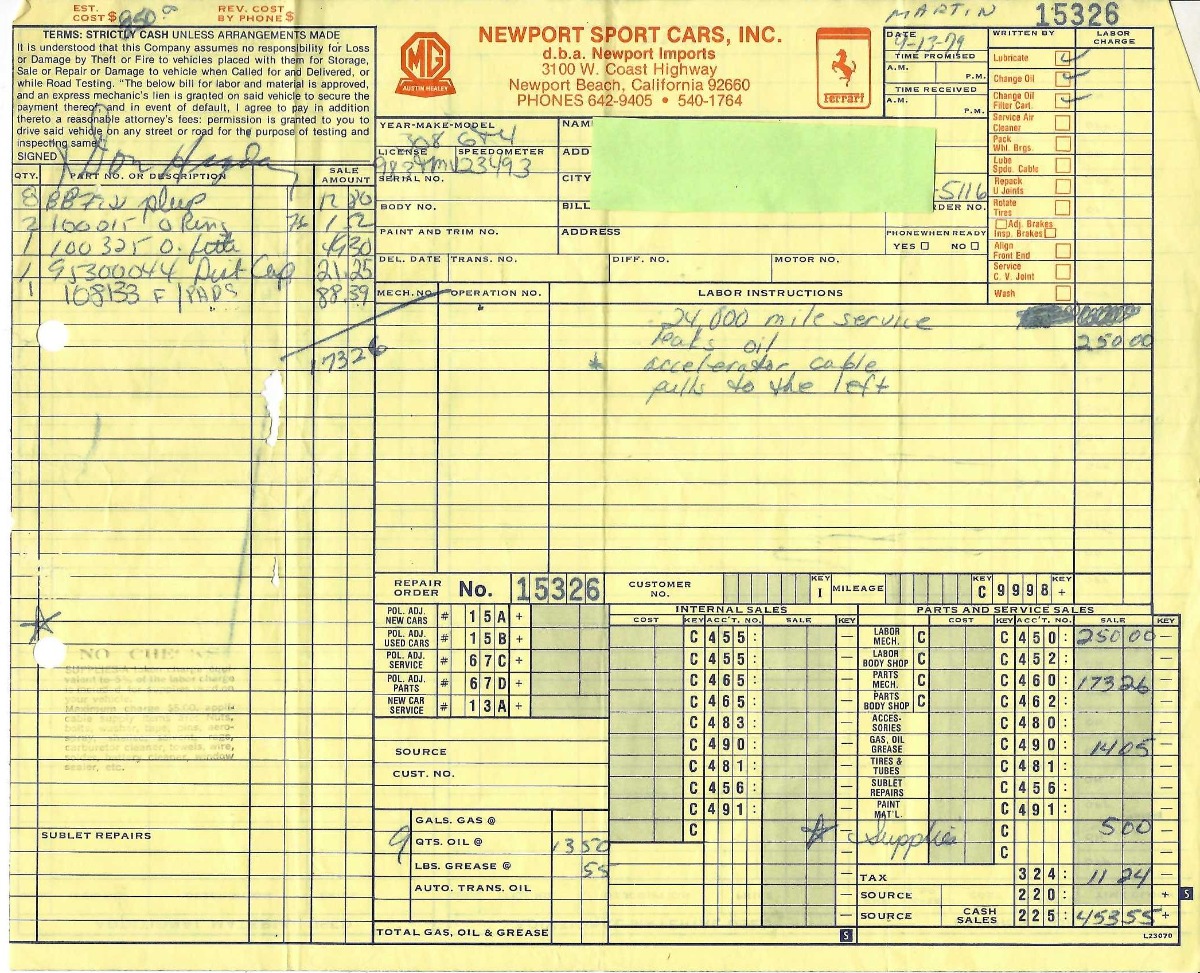 EST. COST $ 250.00
REV. COST BY PHONE $
TERMS: STRICTLY CASH UNLESS ARRANGEMENTS MADE
It is understood that this Company assumes no responsibility for Loss
or Damage by Theft or Fire to vehicles placed with them for Storage,
Sale or Repair or Damage to vehicle when Called for and Delivered, or
while Road Testing. "The below bill for labor and material is approved,
and an express mechanic's lien is granted on said vehicle to secure the
payment thereof and in event of default, I agree to pay in addition
thereto a reasonable attorney's fees: permission is granted to you to
drive said vehicle on any street or road for the purpose of testing and
inspecting same."
SIGNED X Don
MG
AUSTIN HEALEY
NEWPORT SPORT CARS, INC.
d.b.a. Newport Imports
3100 W. Coast Highway
Newport Beach, California 92660
PHONES 642-9405 • 540-1764
ferrari
MARTIN
15326
DATE 9-13-79
TIME PROMISED
A.M.
P.M.
TIME RECEIVED
A.M.
P.M.
WRITTEN BY
LABOR CHARGE
Lubricate
Change Oil
Change Oil Filter Cart.
Service Air Cleaner
Pack Whl. Brgs.
Lube Spdo. Cable
Repack U Joints
Rotate Tires
Adj. Brakes
Insp. Brakes
Align Front End
Service C. V. Joint
Wash
YEAR-MAKE-MODEL
308 GT4
LICENSE
SPEEDOMETER
23493
SERIAL NO.
BODY NO.
PAINT AND TRIM NO.
NAM
ADD
CITY
BILL
ADDRESS
-5116
RDER NO.
PHONE WHEN READY
YES NO
DEL. DATE
TRANS. NO.
DIFF. NO.
MOTOR NO.
QTY.
PART NO. OR DESCRIPTION
SALE AMOUNT
8 plug 12.80
2 100015 O Ring 76 1.52
1 100325 O. 49.30
1 95300044 Dist Cap 21.25
1 108133 F/PADS 88.39
173 26
MECH. NO.
OPERATION NO.
LABOR INSTRUCTIONS
24,000 mile service
leaks oil 250 00
* accelerator cable
pulls to the left
REPAIR ORDER No. 15326
CUSTOMER NO.
KEY I
MILEAGE
KEY C 9998 +
POL. ADJ. NEW CARS # 15A +
POL. ADJ. USED CARS # 15B +
POL. ADJ. SERVICE # 67C +
POL. ADJ. PARTS # 67D +
NEW CAR SERVICE # 13A +
SOURCE
CUST. NO.
INTERNAL SALES
COST KEY ACC'T. NO. SALE KEY
C 455: —
C 455: —
C 465: —
C 465: —
C 483: —
C 490: —
C 481: —
C 456: —
C 491: —
C —
PARTS AND SERVICE SALES
COST KEY ACC'T. NO. SALE KEY
LABOR MECH. C C 450: 250 00 —
LABOR BODY SHOP C C 452: —
PARTS MECH. C C 460: 173 26 —
PARTS BODY SHOP C C 462: —
ACCESSORIES C 480: —
GAS, OIL GREASE C 490: 14 05 —
TIRES & TUBES C 481: —
SUBLET REPAIRS C 456: —
PAINT MAT'L. C 491: —
Supplies C 5 00 —
C —
TAX 324: 11 24 —
SOURCE 220: +
SOURCE CASH SALES 225: 453 55 +
NO CHECKS
SUBLET REPAIRS
GALS. GAS @
9 QTS. OIL @ 13 50
LBS. GREASE @ 55
AUTO. TRANS. OIL
TOTAL GAS, OIL & GREASE
S
S
L23070